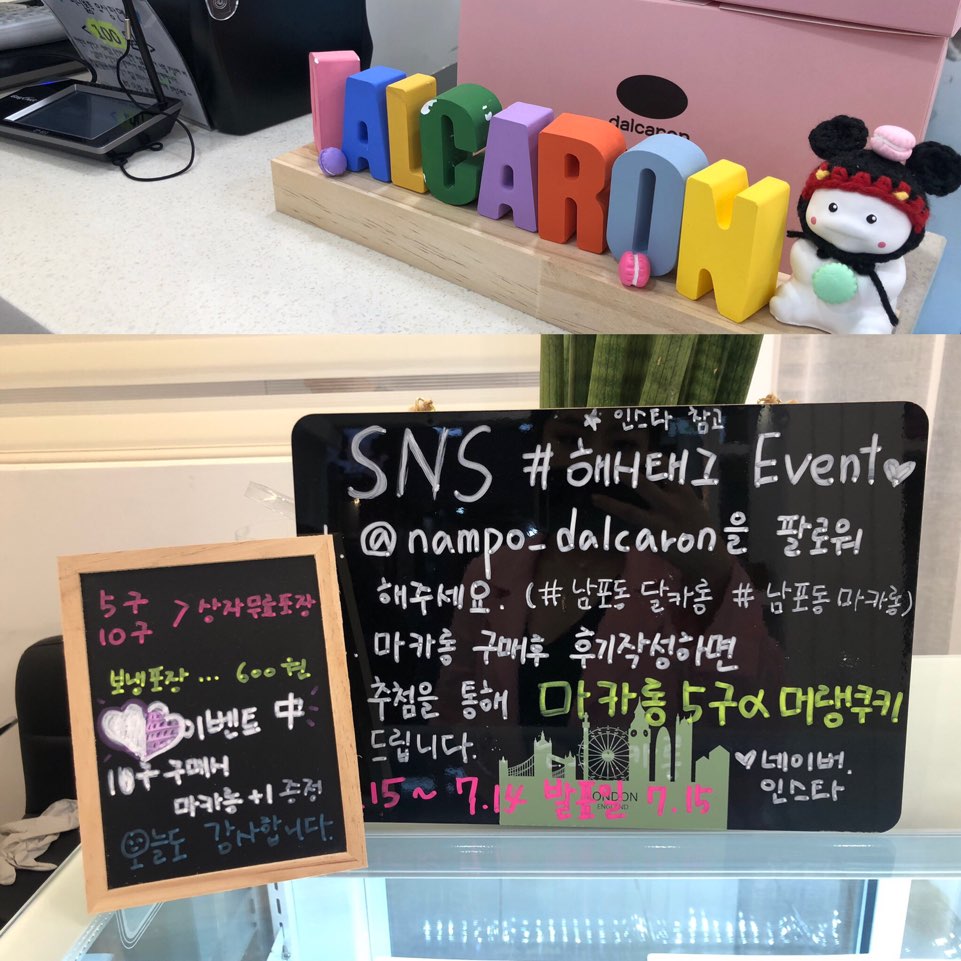 100
dalcaron
DALCARON
* 인스타 참고
SNS #해시태그 Event♡
@nampo_dalcaron을 팔로워
해주세요. (# 남포동 달카롱 # 남포동 마카롱)
마카롱 구매후 후기작성하면
추첨을 통해 마카롱 5구α 머랭쿠키
드립니다.
♡네이버.
인스타
.15~ 7.14 발표일 7.15
LONDON
ENGLAND
5구
10구 > 상자무료포장
보냉포장 ... 600원
이벤트 中
10구 구매시
마카롱 +1 증정
오늘도 감사합니다.